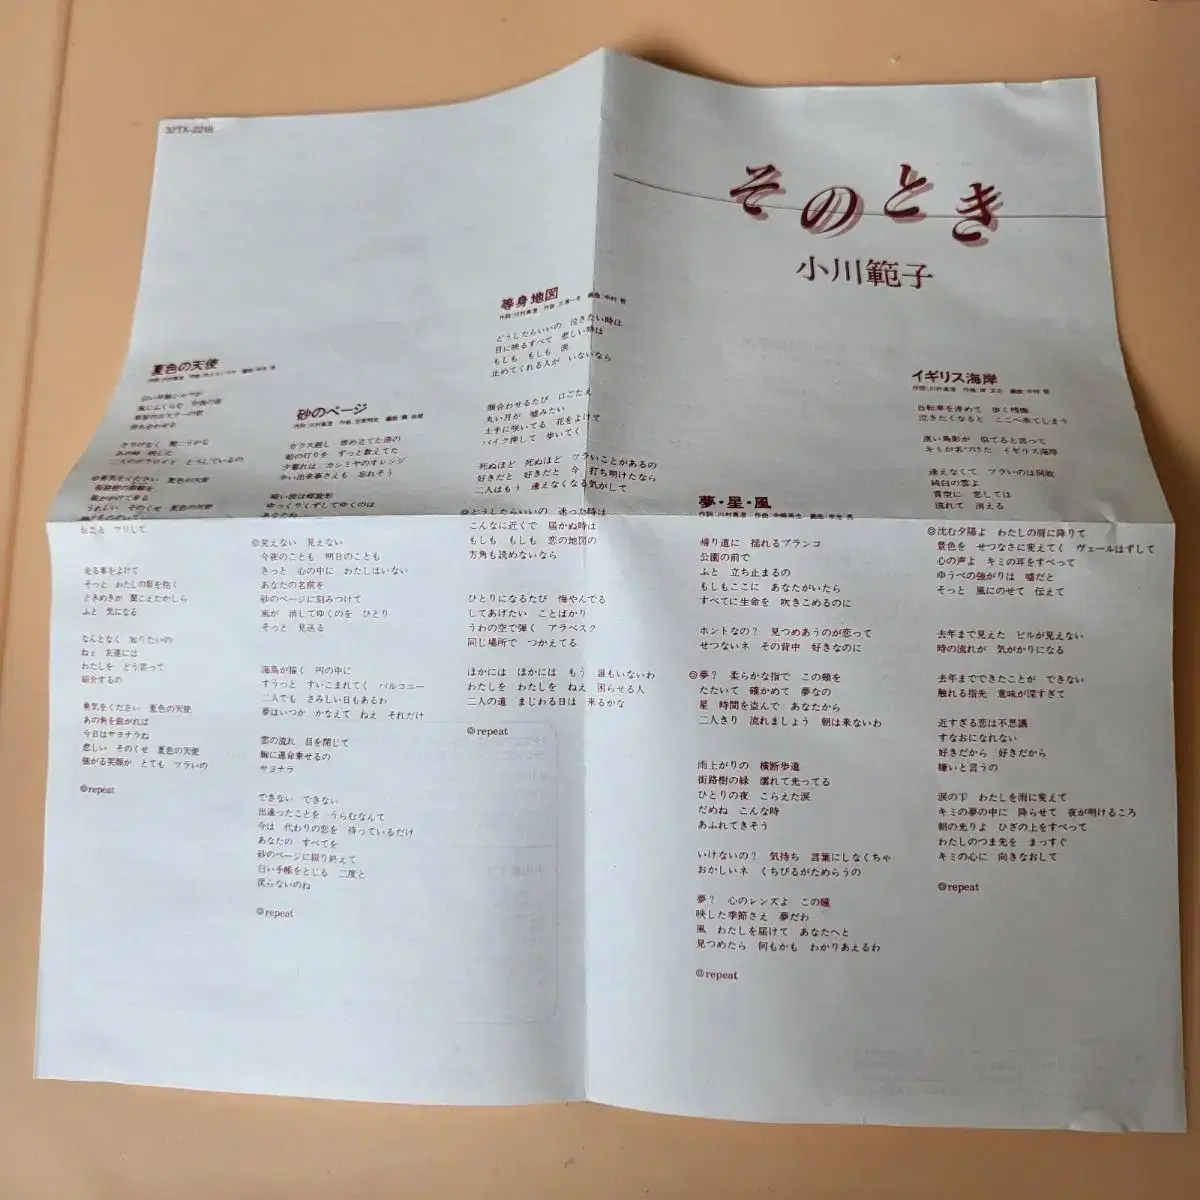 32TX-2218
そのとき
小川範子
夏色の天使
さりげなく 驚こうかな
あの時 映した
二人のポラロイド どうしているの
◎勇気をください 夏色の天使
街路樹の部屋を
風がかけて来る
うれしい そのくせ 夏色の天使
おこる フリして
走る車をよけて
そっと わたしの肩を抱く
ときめきが 聞こえたかしら
ふと 気になる
なんとなく 知りたいの
ねぇ 友達には
わたしを どう言って
紹介するの
勇気をください 夏色の天使
あの角を曲がれば
今日はサヨナラね
悲しい そのくせ 夏色の天使
強がる笑顔が とても ツラいの
◎repeat
砂のページ
ガラス越し 暮め立てた港の
船の灯りを ずっと数えてた
夕暮れは カシミヤのオレンジ
辛い出来事さえも 忘れそう
暗い波は螺旋形
ゆっくりくずしてゆくのは
あなたね
◎見えない 見えない
今夜のことも 明日のことも
きっと 心の中に わたしはいない
あなたの名前を
砂のページに刻みつけて
風が 消してゆくのを ひとり
そっと 見送る
海鳥が描く 円の中に
すうっと すいこまれてく バルコニー
二人でも さみしい日もあるわ
夢はいつか かなえて ねえ それだけ
雲の流れ 目を閉じて
胸に運命乗せるの
サヨナラ
できない できない
出逢ったことを うらむなんて
今は 代わりの恋を 待っているだけ
あなたの すべてを
砂のページに綴り終えて
白い手帳をとじる 二度と
戻らないのね
◎repeat
等身地図
どうしたらいいの 泣きたい時は
目に映るすべて 悲しい時は
もしも もしも 涙
止めてくれる人が いないなら
顔合わせるたび 口ごたえ
丸い月が 嘘みたい
土手に咲いてる 花をよけて
バイク押して 歩いてく
死ぬほど 死ぬほど ツラいことがあるの
好きだと 好きだと 今 打ち明けたなら
二人はもう 逢えなくなる気がして
◎どうしたらいいの 迷った時は
こんなに近くで 届かぬ時は
もしも もしも 恋の地図の
方角も読めないなら
ひとりになるたび 悔やんでる
してあげたい ことばかり
うわの空で弾く アラベスク
同じ場所で つかえてる
ほかには ほかには もう 誰もいないわ
わたしを わたしを ねえ 困らせる人
二人の道 まじわる日は 来るかな
◎repeat
夢・星・風
帰り道に 揺れるブランコ
公園の前で
ふと 立ち止まるの
もしもここに あなたがいたら
すべてに生命を 吹きこめるのに
ホントなの? 見つめあうのが恋って
せつないネ その背中 好きなのに
◎夢? 柔らかな指で この頬を
たたいて 確かめて 夢なの
星 時間を盗んで あなたから
二人きり 流れましょう 朝は来ないわ
雨上がりの 横断歩道
街路樹の緑 濡れて光ってる
ひとりの夜 こらえた涙
だめね こんな時
あふれてきそう
いけないの? 気持ち 言葉にしなくちゃ
おかしいネ くちびるがためらうの
夢? 心のレンズよ この瞳
映した季節さえ 夢だわ
風 わたしを届けて あなたへと
見つめたら 何もかも わかりあえるわ
◎repeat
イギリス海岸
自転車を停めて 歩く桟橋
泣きたくなると ここへ来てしまう
黒い鳥影が 似てると言って
キミが名づけた イギリス海岸
逢えなくて ツラいのは何故
純白の雲よ
青空に 恋しては
流れて 消える
◎沈む夕陽よ わたしの肩に降りて
景色を せつなさに変えてく ヴェールはずして
心の声よ キミの耳をすべって
ゆうべの強がりは 嘘だと
そっと 風にのせて 伝えて
去年まで見えた ビルが見えない
時の流れが 気がかりになる
去年までできたことが できない
触れる指先 意味が深すぎて
近すぎる恋は不思議
すなおになれない
好きだから 好きだから
嫌いと言うの
涙の下 わたしを雨に変えて
キミの夢の中に 降らせて 夜が明けるころ
朝の光りよ ひざの上をすべって
わたしのつま先を まっすぐ
キミの心に 向きなおして
◎repeat